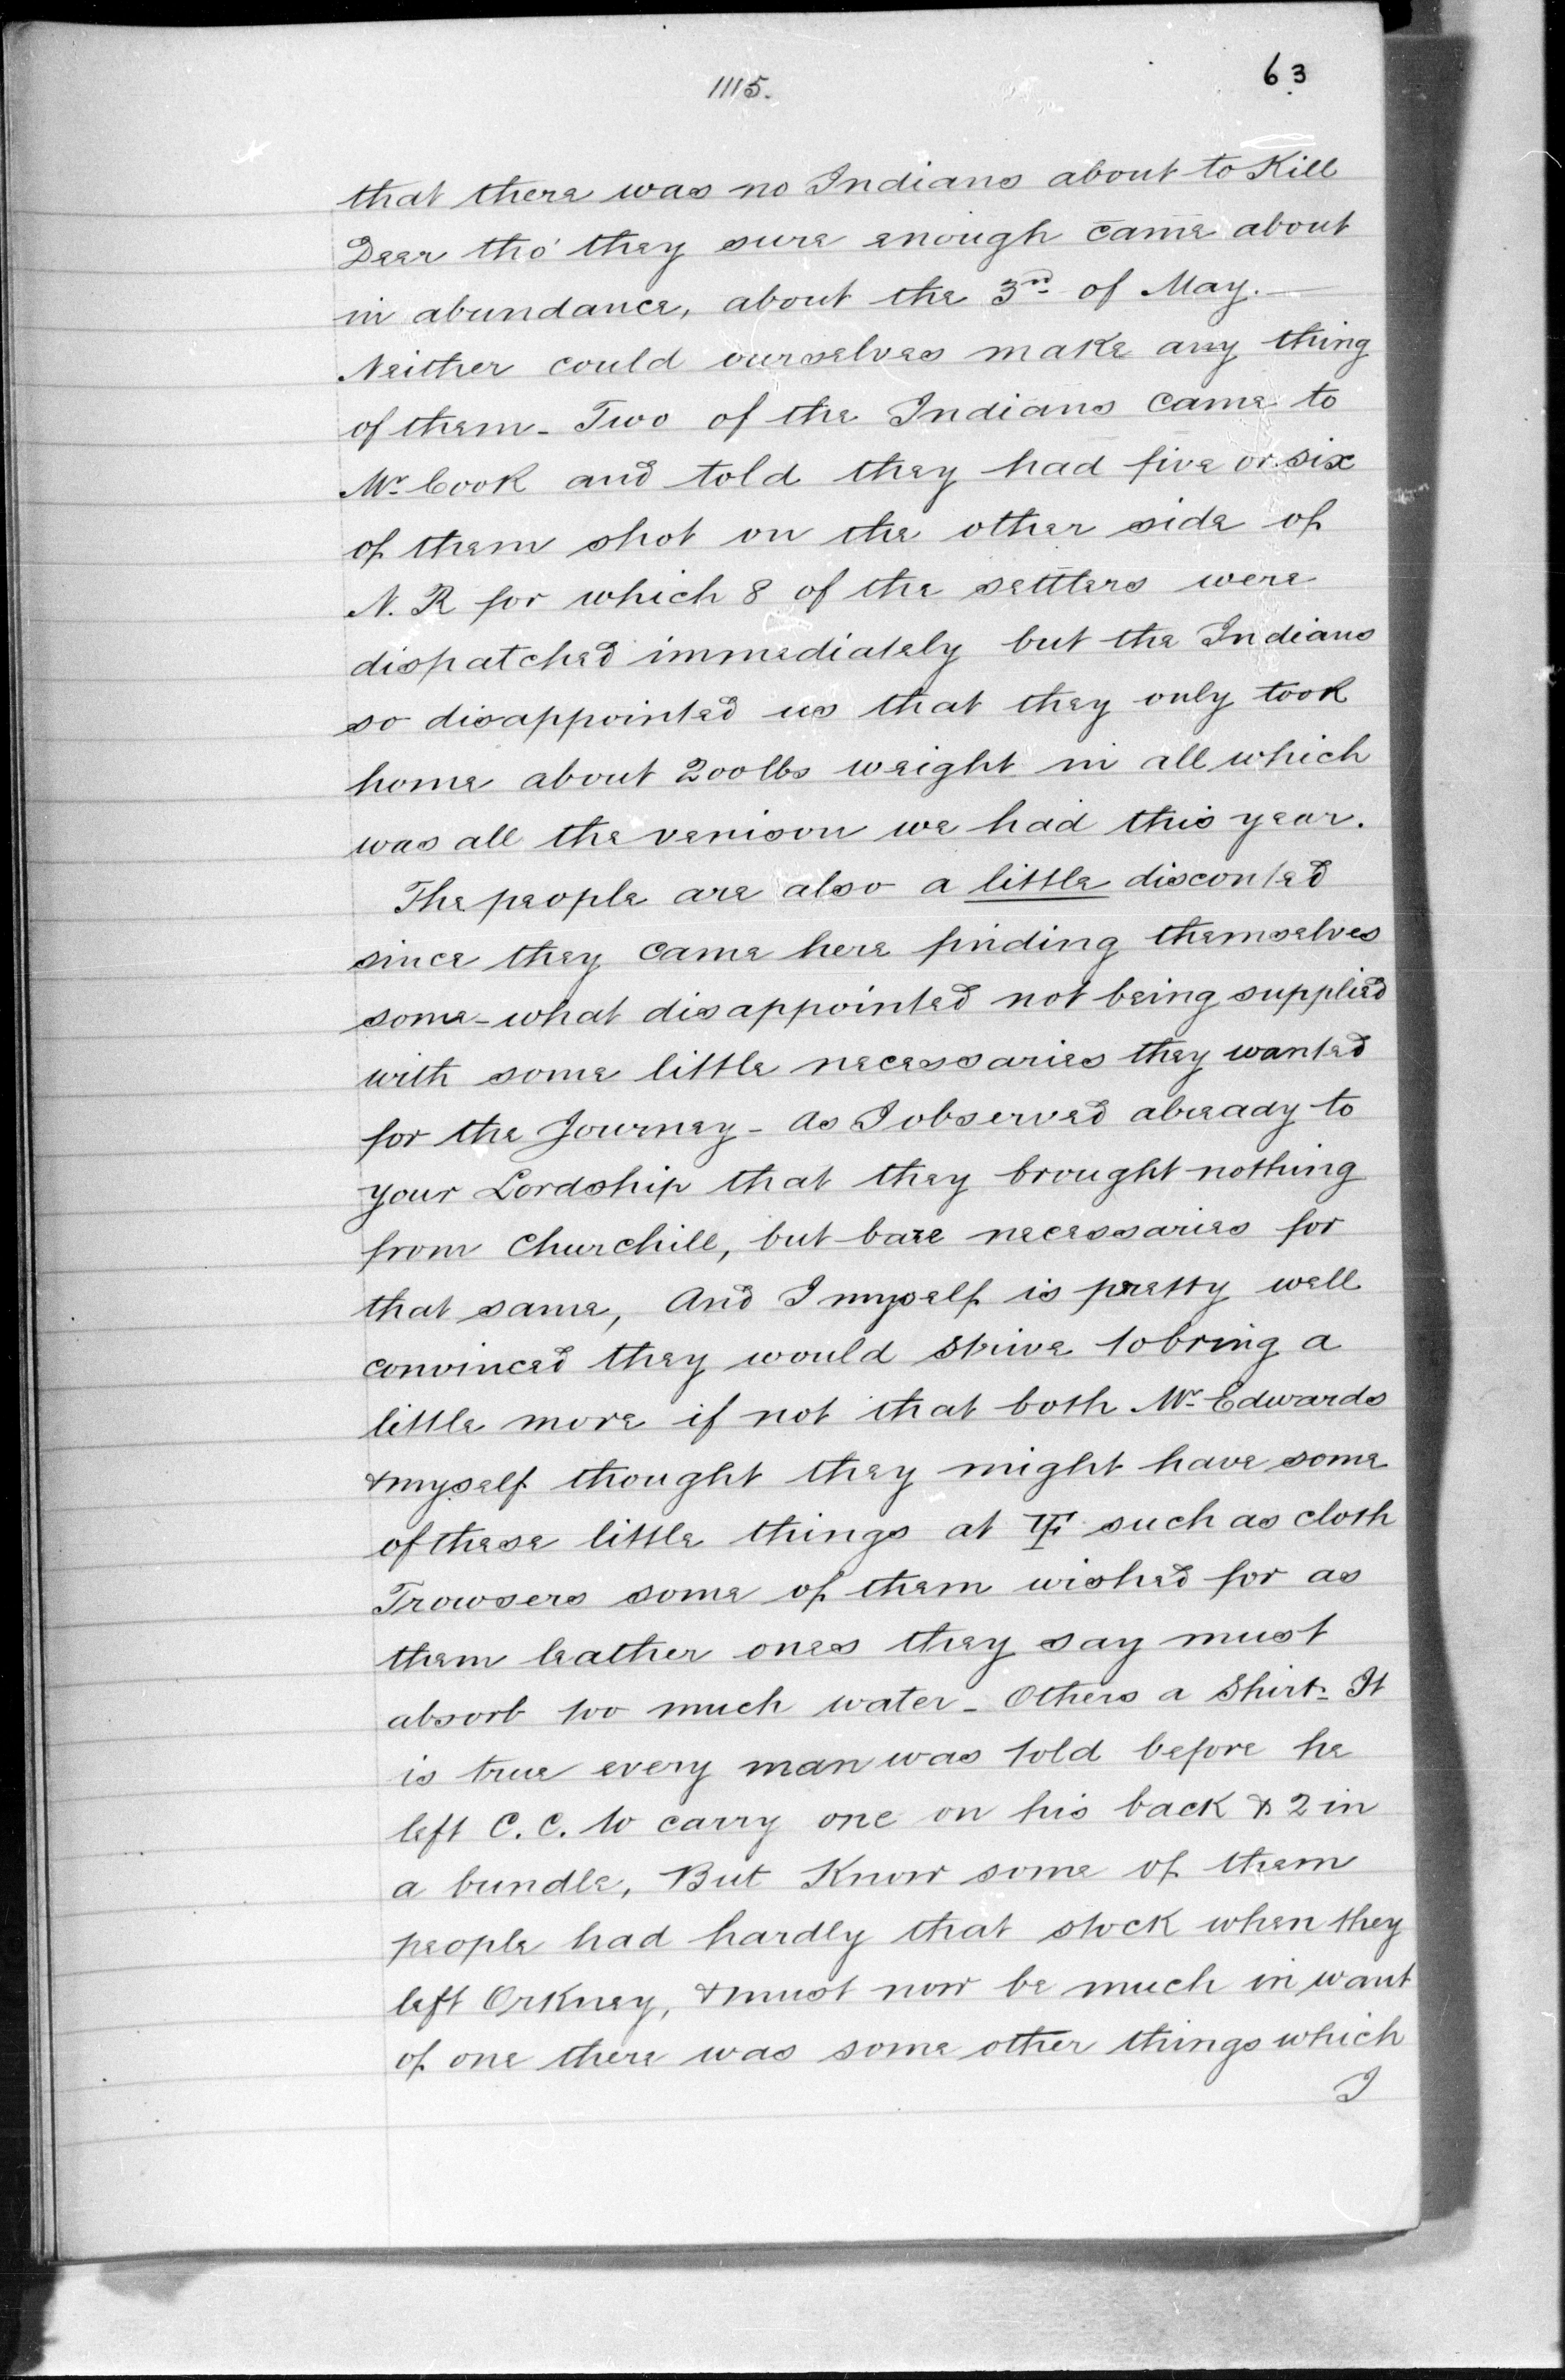 1115.
63
that there was no Indians about to Kill
Deer tho' they sure enough came about
in abundance, about the 3rd of May. —
Neither could ourselves make any thing
of them - Two of the Indians came to
Mr. Cook and told they had five or six
of them shot on the other side of
N. R for which 8 of the settlers were
dispatched immediately but the Indians
so disappointed us that they only took
home about 200 lbs weight in all which
was all the venison we had this year.
The people are also a little disconted
since they came here finding themselves
some-what disappointed not being supplied
with some little necessaries they wanted
for the Journey - As I observed already to
your Lordship that they brought nothing
from Churchill, but bare necessaries for
that same, And I myself is pretty well
convinced they would strive to bring a
little more if not that both Mr. Edwards
& myself thought they might have some
of these little things at YF such as cloth
Trowsers some of them wished for as
them leather ones they say must
absorb too much water - Others a Shirt - It
is true every man was told before he
left C. C. to carry one on his back & 2 in
a bundle, But Know some of them
people had hardly that stock when they
left Orkney, & must now be much in want
of one there was some other things which
I